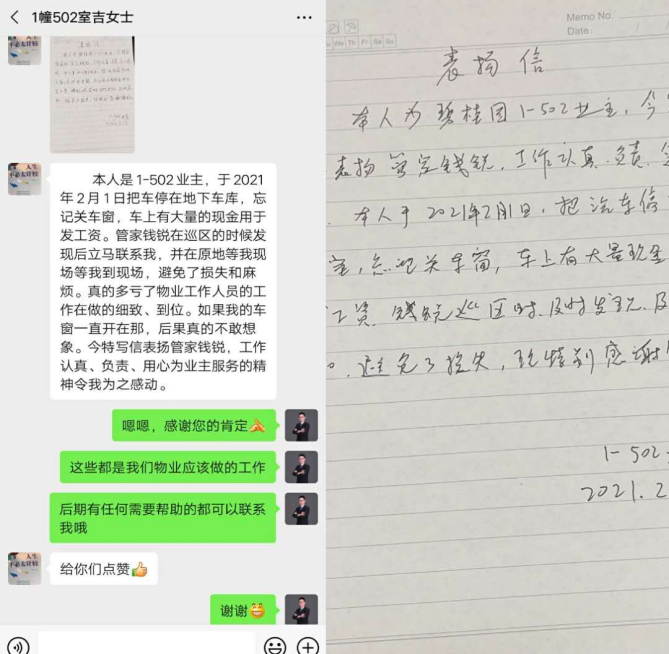 1幢502室吉女士
本人是1-502业主，于2021
年2月1日把车停在地下车库，忘
记关车窗，车上有大量的现金用于
发工资。管家钱锐在巡区的时候发
现后立马联系我，并在原地等我到现
场等我到现场，避免了损失和麻
烦。真的多亏了物业工作人员的工
作在做的细致、到位。如果我的车
窗一直开在那，后果真的不敢想
象。今特写信表扬管家钱锐，工作
认真、负责、用心为业主服务的精
神令我为之感动。
嗯嗯，感谢您的肯定
这些都是我们物业应该做的工作
后期有任何需要帮助的都可以联系
我哦
给你们点赞
谢谢
Memo No.
Date:
We Th Fr Sa Su
表扬信
本人为碧桂园1-502业主，今
表扬管家钱锐，工作认真.负责.
本人于2021年2月1日，把汽车停
忘记关车窗，车上有大量现金
工资.钱锐巡区时.及时发现.及
避免了损失，现特别感谢
1-502
2021.2